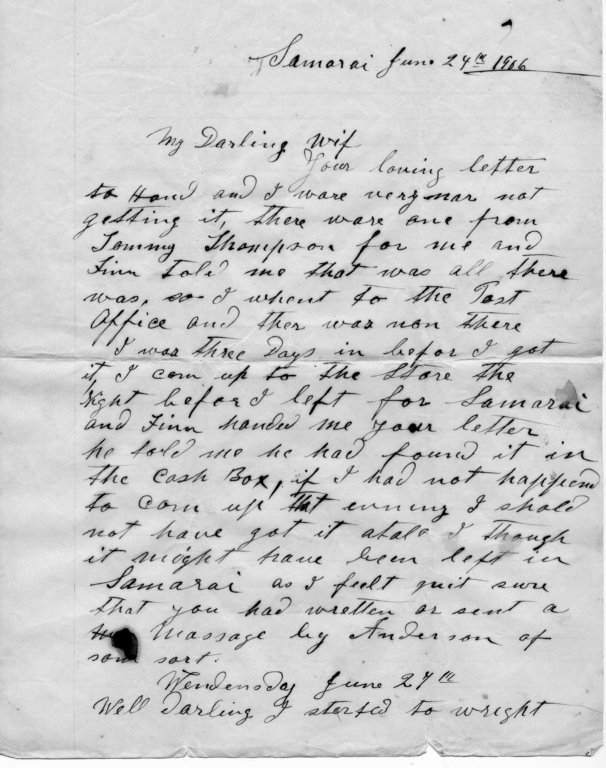 Samarai June 24th 1906
My Darling Wif
Your loving letter
to Hand and I ware very nar not
getting it, there ware one from
Tommy Thompson for me and
Finn told me that was all there
was, so I whent to the Post
Office and ther was non there
I was three Days in befor I got
it, I com up to the Store the
Night befor I left for Samarai
and Finn handed me your letter
he told me he had found it in
the Cash Box, if I had not happend
to com up that evning I shold
not have got it atale I though
it might have been left in
Samarai as I feelt quit sure
that you had wretten or sent a
Massage by Anderson of
som sort.
Wendensday June 27th
Well Darling I started to wright